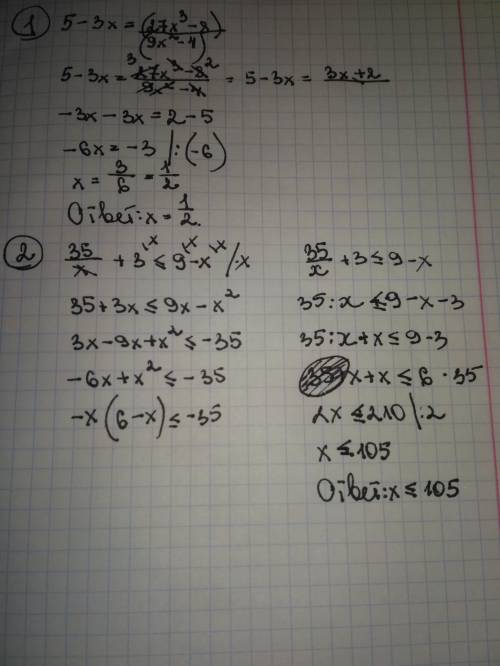 1 5-3x = (27x³-8)/(9x²-4)
5-3x = 3 27x³-8 2/9x²-4 = 5-3x = 3x+2
-3x-3x = 2-5
-6x = -3 |:(-6)
x = 3/6 = 1/2
Ответ: x = 1/2.
2 35/x + 3 \x ≤ 9 \x - x \x /·x
35+3x ≤ 9x-x²
3x-9x+x² ≤ -35
-6x+x² ≤ -35
-x(6-x) ≤ -35
35/x + 3 ≤ 9-x
35:x ≤ 9-x-3
35:x+x ≤ 9-3
x+x ≤ 6·35
2x ≤ 210 |:2
x ≤ 105
Ответ: x ≤ 105